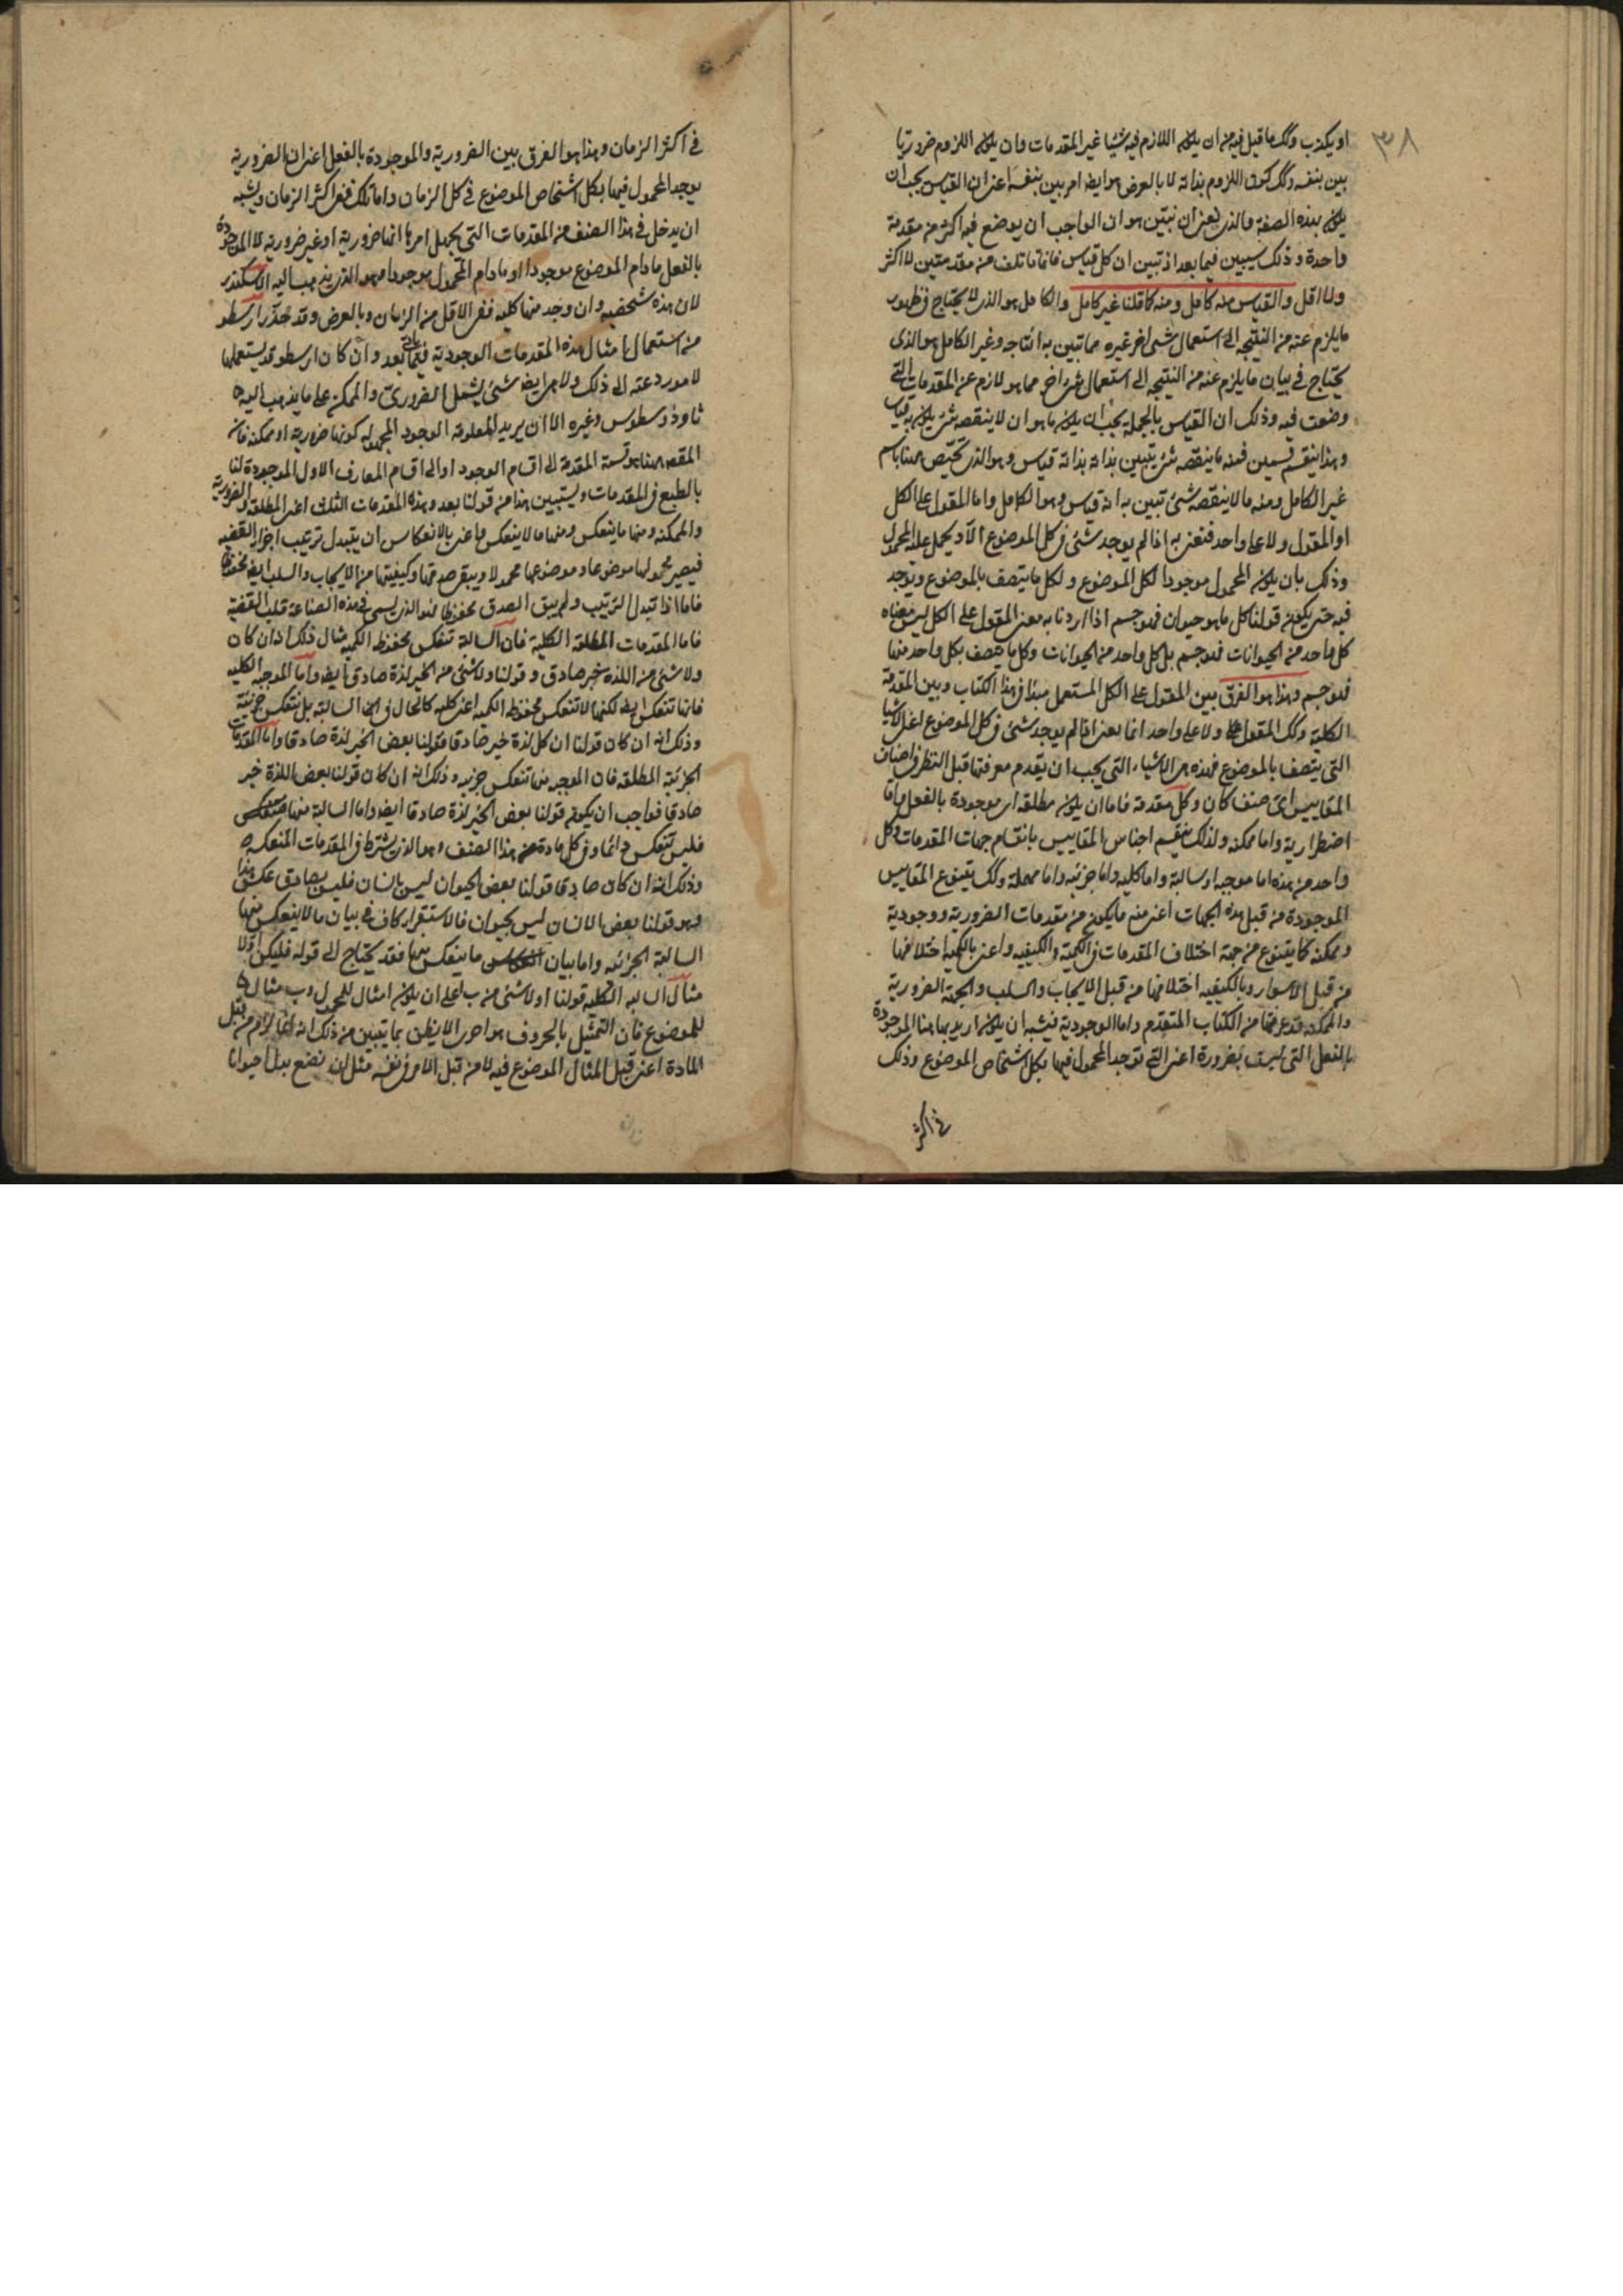 ٣٨
او يكذب وكك ما قيل فيه من ان يكون اللازم فيه شيئا غير المقدمات وان يكون اللزوم ضروريا
بين بنفسه وكك كون اللزوم بذاته لا بالعرض هو ايضا امر بين بنفسه اعنى ان القياس يجب ان
يكون بهذه الصفة والذى نعنى ان نبين هو ان الواجب ان يوضع فيه اكثر من مقدمة
واحدة وذلك سيبين فيما بعد اذ تبين ان كل قياس فانما تاتلف من مقدمتين لا اكثر
ولا اقل والقياس منه كامل ومنه كما قلنا غير كامل والكامل هو الذى لا يحتاج فى ظهور
ما يلزم عنه من النتيجه الى استعمال شىء اخر غيره مما تبين به انتاجه وغير الكامل هو الذى
يحتاج فى بيان ما يلزم عنه من النتيجه الى استعمال شىء اخر مما هو لازم عن المقدمات التى
وضعت فيه وذلك ان القياس بالجملة يجب ان يكون ما هو ان لا ينقصه شىء يكون به قياس
وهذا ينقسم قسمين فمنه ما ينقصه شىء يتبين بذاته بذاته قياس وهو الذى تخصص هنا باسم
غير الكامل ومنه ما لا ينقصه شىء تبين به انه قياس وهو الكامل واما المقول على الكل
او المقول ولا على واحد فنعنى به اذا لم يوجد شىء فى كل الموضوع الا ويحمل عليه المحمول
وذلك بان يكون المحمول موجودا لكل الموضوع ولكل ما يتصف بالموضوع ويوجد
فيه حتى يكون قولنا كل ما هو حيوان فهو جسم اذا اردنا به معنى المقول على الكل ليس معناه
كل واحد من الحيوانات فهو جسم بل كل واحد من الحيوانات وكل ما يتصف بكل واحد منها
فهو جسم وهذا هو الفرق بين المقول على الكل المستعمل مبدا فى هذا الكتاب وبين المقدمة
الكلية وكك المقول ولا على واحد انما يعنى اذا لم يوجد شىء فى كل الموضوع اعنى الاشيا
التى يتصف بالموضوع فهذه هى الاشياء التى يجب ان يتقدم معرفتها قبل النظر فى اصناف
المقاييس اى صنف كان وكل مقدمة فاما ان يكون مطلقه اى موجودة بالفعل واما
اضطرارية واما ممكنه ولذلك ينقسم اجناس المقاييس بانقسام جهات المقدمات وكل
واحد من هذه اما موجبه او سالبة واما كليه واما جزئيه واما مهملة وكك يتنوع المقاييس
الموجودة من قبل هذه الجهات اعنى منه ما يكون من مقدمات الضرورية ووجودية
وممكنه كما يتنوع من جهة اختلاف المقدمات فى الكمية والكيفيه واعنى بالكميه اختلافها
من قبل الاسوار وبالكيفيه اختلافها من قبل الايجاب والسلب والجهة الضرورية
والممكنه قد عرفتها من الكتاب المتقدم واما الوجودية فيشبه ان يكون اريد بها هنا الموجودة
بالفعل التى ليست بضرورة اعنى التى توجد المحمول فيها بكل اشخاص الموضوع وذلك
فى اكثر
فى اكثر الزمان وهذا هو الفرق بين الضرورية والموجودة بالفعل اعنى ان الضرورية
يوجد المحمول فيها بكل اشخاص الموضوع فى كل الزمان واما تلك ففى اكثر الزمان ويشبه
ان يدخل فى هذا الصنف من المقدمات التى يجهل امرها انها ضرورية او غير ضرورية لا الموجودة
بالفعل ما دام الموضوع موجودا او ما دام المحمول موجودا وهو الذى يذهب اليه الاسكندر
لان هذه شخصيه وان وجد منها كليه ففى الاقل من الزمان وبالعرض وقد حذر ارسطو
من استعمال امثال هذه المقدمات الوجودية فيما ياتى بعد وان كان ارسطو قد يستعملها
لامور دعته الى ذلك ولا هى ايضا شىء يشمل الضرورى والممكن على ما يذهب اليه
ثاوفرسطوس وغيره الا ان يريد المعلومة الوجود المجهوله كونها ضرورية او ممكنه فانه
المقصد هنا هو قسمة المقدمة الى اقسام الوجود او الى اقسام المعارف الاول الموجودة لنا
بالطبع فى المقدمات وليستبين هذا من قولنا بعد وهذه المقدمات الثلث اعنى المطلقة والضرورية
والممكنه ومنها ما ينعكس ومنها ما لا ينعكس واعنى بالانعكاس ان يتبدل ترتيب اجزاء القضيه
فيصير محمولها موضوعا وموضوعها محمولا ويبقى صدقها وكيفيتها من الايجاب والسلب ايضا محفوظا
فاما اذا تبدل الترتيب ولم يبق الصدق محفوظا فهو الذى يسمى فى هذه الصناعة قلب القضية
فاما المقدمات المطلقه الكلية فان السالبة تنعكس محفوظه الكميه مثال ذلك اذ ان كان
ولا شىء من اللذه خير صادق وقولنا ولا شىء من الخير لذة صادق ايضا واما الموجبه الكليه
فانها تنعكس ايضا لكنها لا تنعكس محفوظه الكميه اعنى كليه كالحال فى السالبة بل تنعكس جزئية
وذلك انه ان كان قولنا ان كل لذة خير صادقا فقولنا بعض الخير لذة صادقا واما المقدمات
الجزئية المطلقه فان الموجبه منها تنعكس جزئيه وذلك انه ان كان قولنا بعض اللذة خير
صادقا فواجب ان يكون قولنا بعض الخير لذة صادقا ايضا واما السالبة منها
فليس تنعكس دائما وفى كل مادة هذا الصنف وهو الذى يشترط فى المقدمات المنعكسه
وذلك انه ان كان صادقا قولنا بعض الحيوان ليس بانسان فليس بصادق عكس هذا
وهو قولنا بعض الانسان ليس بحيوان فالاستقراء كاف فى بيان ما لا ينعكس منها
السالبة الجزئيه واما بيان ما ينعكس منها فقد يحتاج الى قوله فليكن اولا
مثال السالبه الكليه قولنا ا ولا شىء من ب اعلى ان يكون ا مثال للمحمول وب مثال
للموضوع فان التمثيل بالحروف هو احرى الا يظن بما يتبين من ذلك انه انما لزم من قبل
المادة اعنى قبل المثال الموضوع فيه لا من قبل الامر فى نفسه مثل ان نضع بدل ا حيوانا